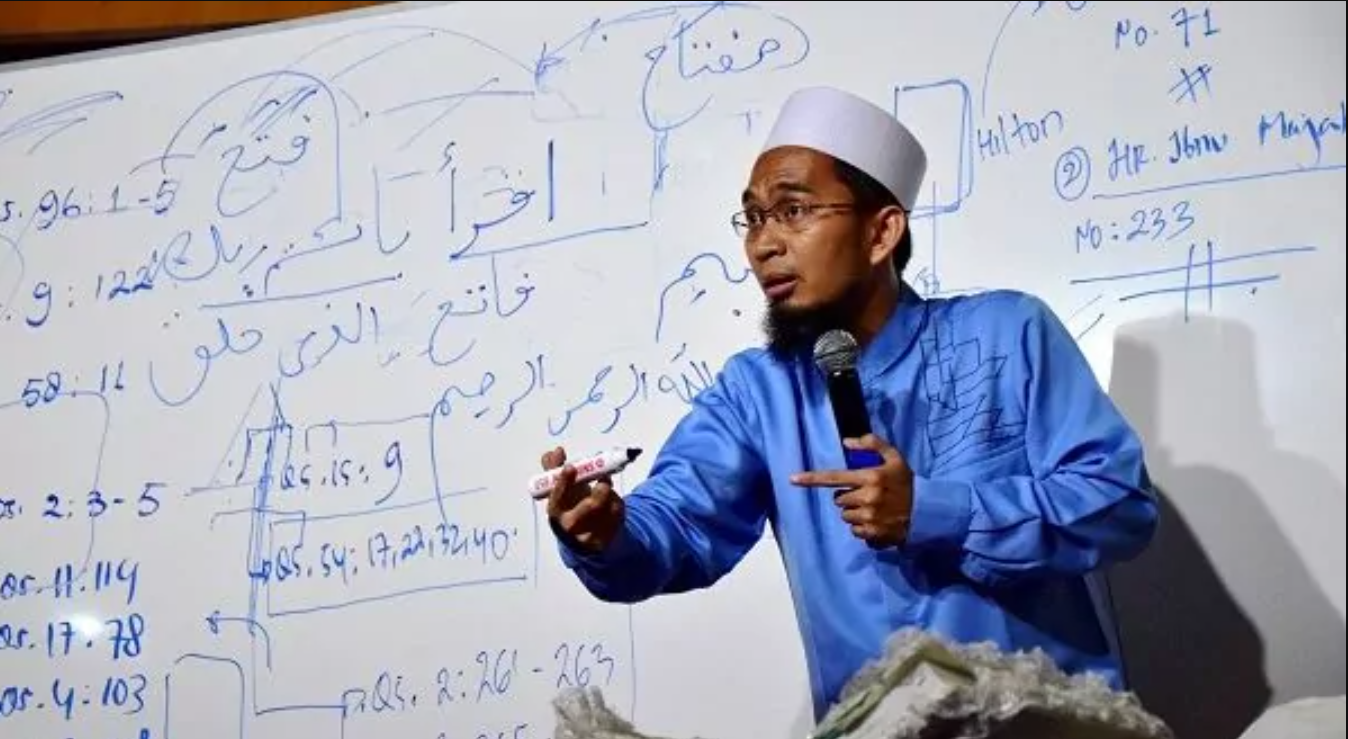 مفتاح
No. 71
#
Hilton
② HR. Ibnu
No: 233
فتح
96:1-5
اقرأ
باسم ربك
9:122
فاتح
بسم
الذي خلق
58:11
الله الرحمن الرحيم
QS. 15:9
2:3-5
QS. 54:17,22,32,40
QS. 11:114
QS. 17:78
QS. 4:103
QS. 2:261-263